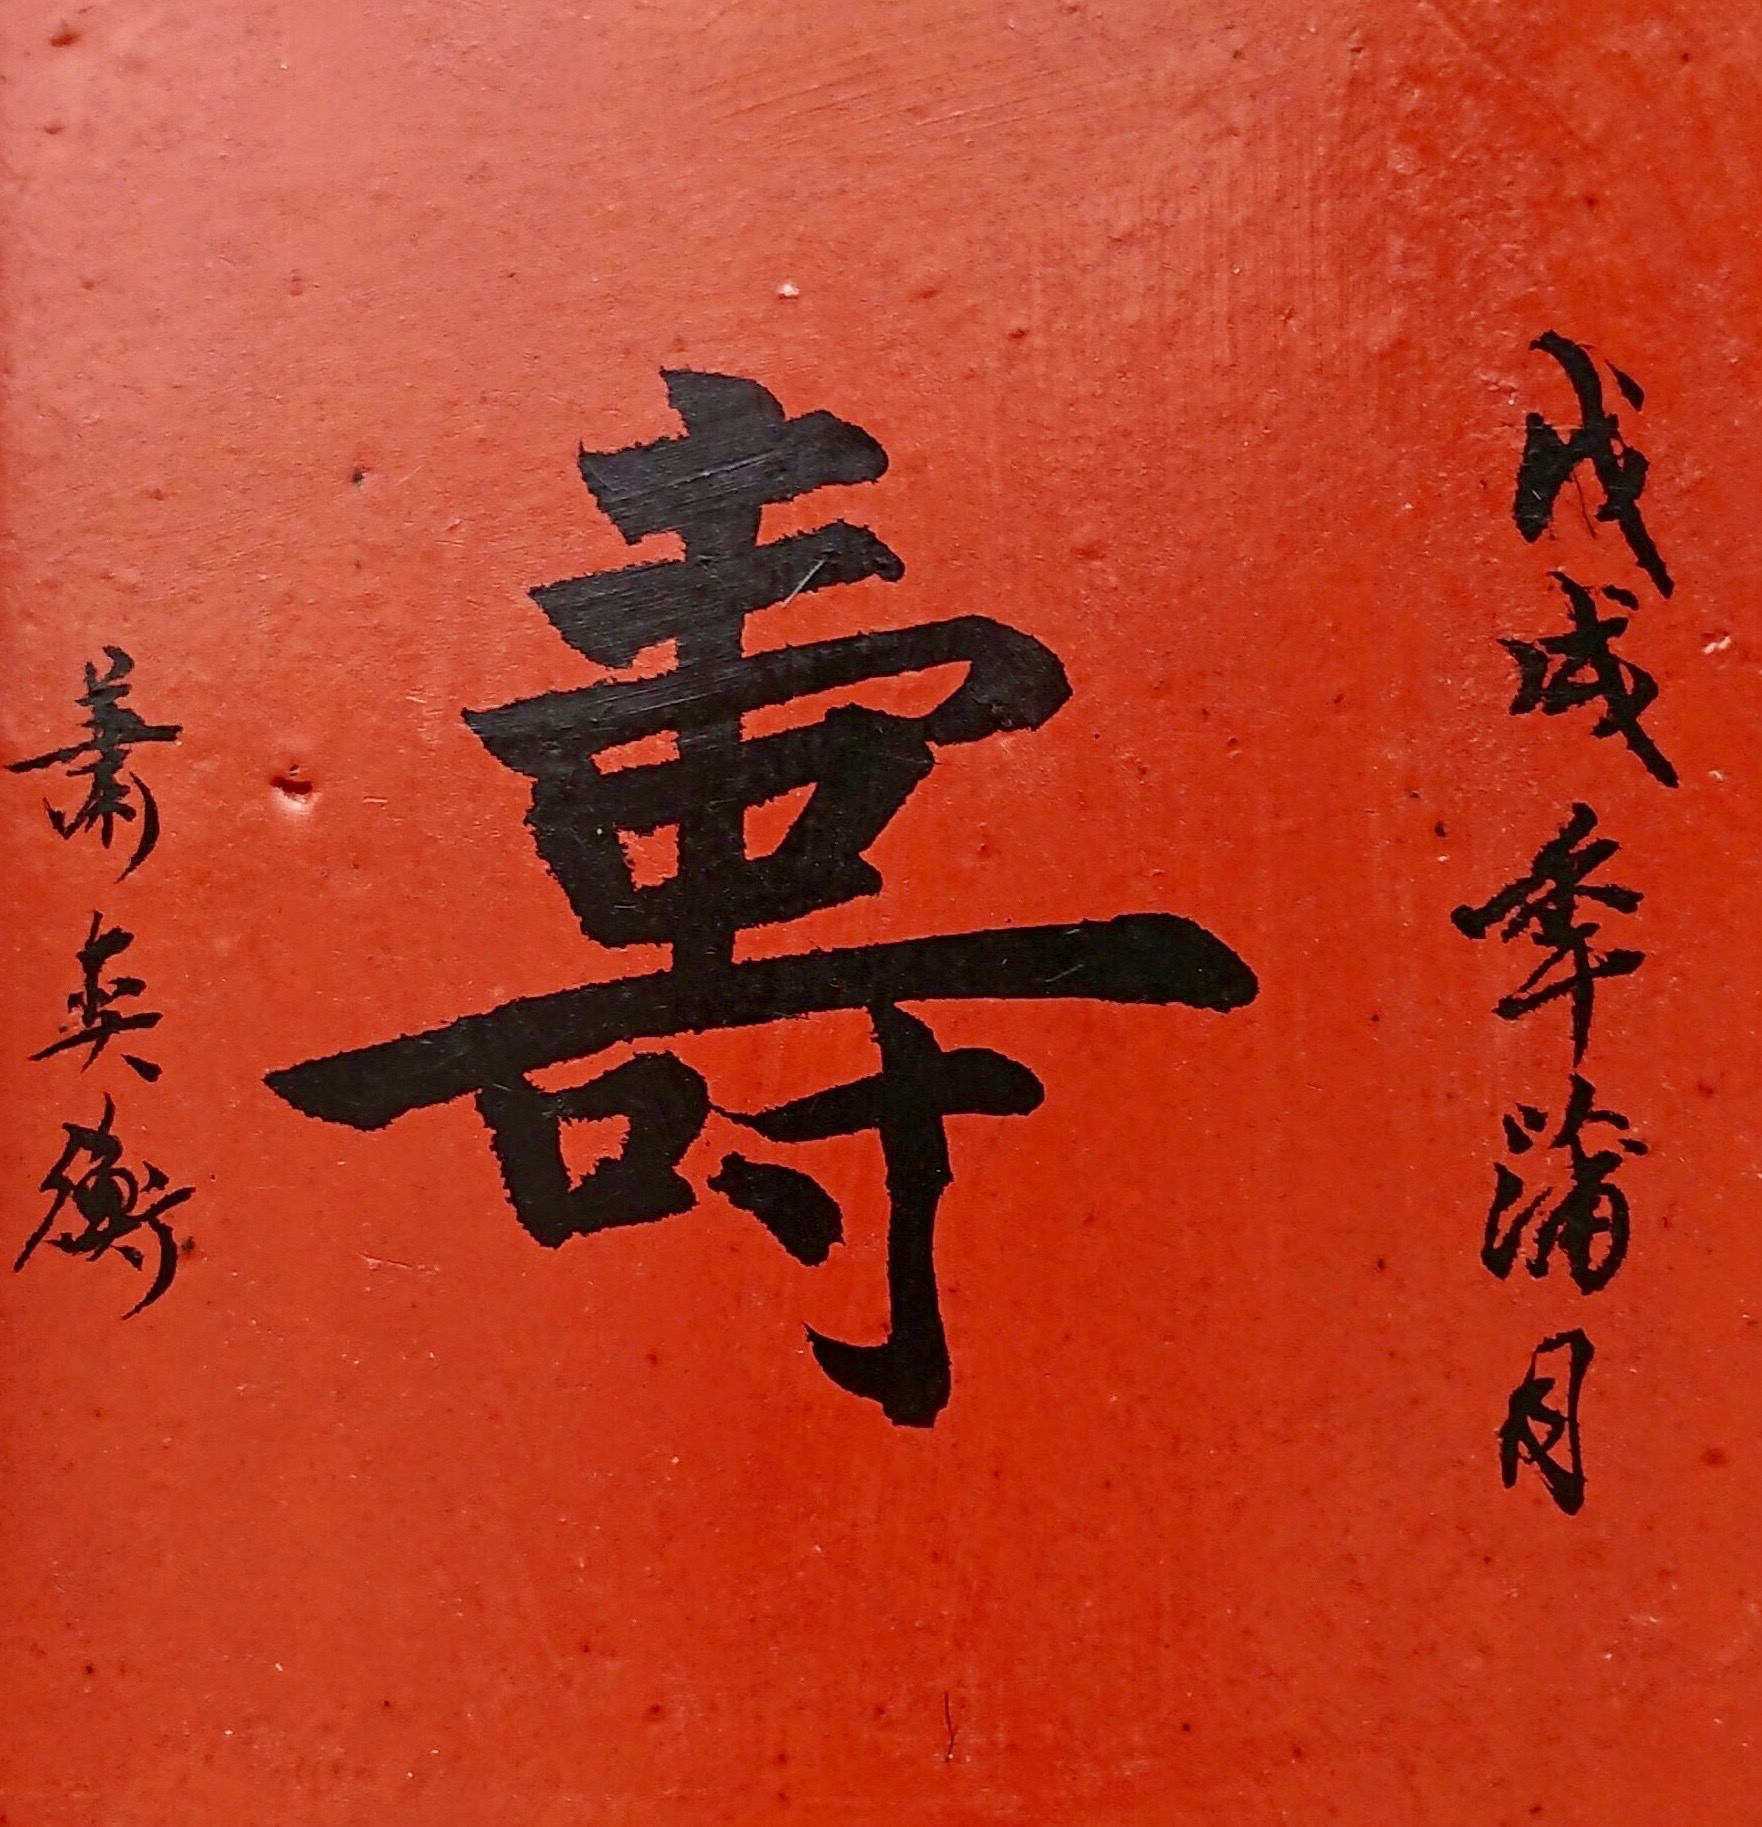 戊戌年蒲月
壽
蕭奕衡